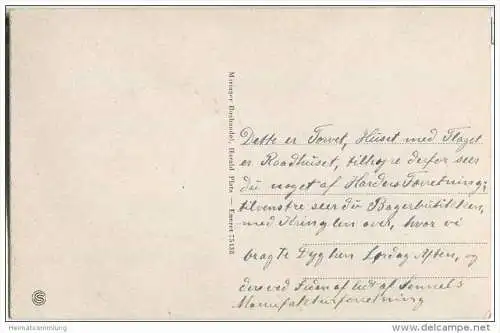 Mariager Boghandel, Harald Plats — Eneret 75438
Dette er Torvet, Huset med Flaget
er Raadhuset, tilhøjre derfor seer
du noget af Harders Forretning;
tilvenstre seer du Bagerbutikken,
med Kringlen over, hvor vi
bragte Dyglien Lørdag Aften, og
derved Siden af lidt af Sennels
Manufakturforretning
Heimatsammlung
www.delcampe.net